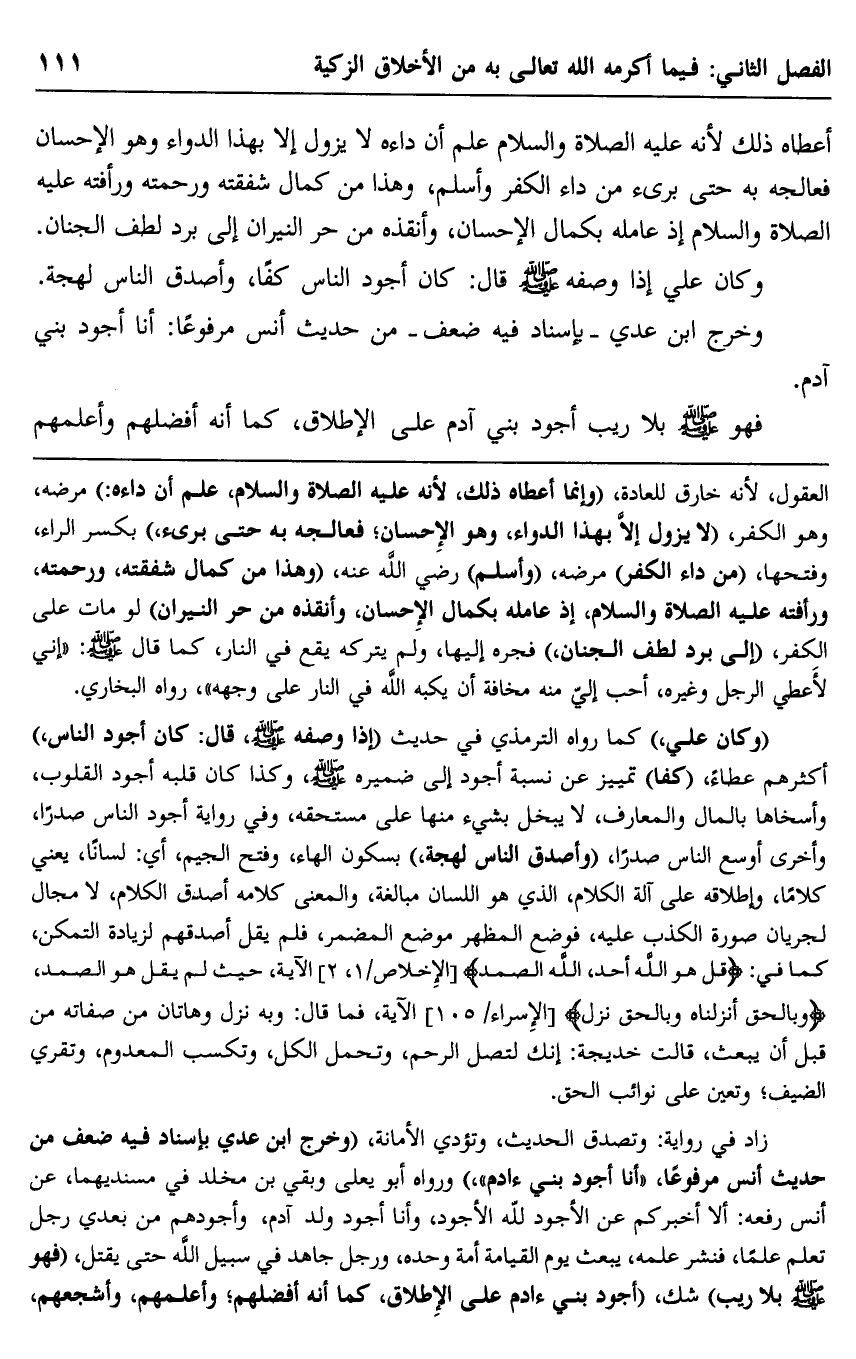 الفصل الثاني: فيما أكرمه الله تعالى به من الأخلاق الزكية ١١١
أعطاه ذلك لأنه عليه الصلاة والسلام علم أن داءه لا يزول إلا بهذا الدواء وهو الإحسان
فعالجه به حتى برىء من داء الكفر وأسلم، وهذا من كمال شفقته ورحمته ورأفته عليه
الصلاة والسلام إذ عامله بكمال الإحسان، وأنقذه من حر النيران إلى برد لطف الجنان.
وكان علي إذا وصفه ﷺ قال: كان أجود الناس كفًا، وأصدق الناس لهجة.
وخرج ابن عدي ـ بإسناد فيه ضعف ـ من حديث أنس مرفوعًا: أنا أجود بني
آدم.
فهو ﷺ بلا ريب أجود بني آدم على الإطلاق، كما أنه أفضلهم وأعلمهم
العقول، لأنه خارق للعادة، (وإنما أعطاه ذلك، لأنه عليه الصلاة والسلام، علم أن داءه:) مرضه،
وهو الكفر، (لا يزول إلاَّ بهذا الدواء، وهو الإحسان؛ فعالجه به حتى برىء،) بكسر الراء،
وفتحها، (من داء الكفر) مرضه، (وأسلم) رضي اللَّه عنه، (وهذا من كمال شفقته، ورحمته،
ورأفته عليه الصلاة والسلام، إذ عامله بكمال الإحسان، وأنقذه من حر النيران) لو مات على
الكفر، (إلى برد لطف الجنان،) فجره إليها، ولم يتركه يقع في النار، كما قال ﷺ: «إني
لأعطي الرجل وغيره، أحب إليّ منه مخافة أن يكبه اللَّه في النار على وجهه»، رواه البخاري.
(وكان علي،) كما رواه الترمذي في حديث (إذا وصفه ﷺ، قال: كان أجود الناس،)
أكثرهم عطاءً، (كفا) تمييز عن نسبة أجود إلى ضميره ﷺ، وكذا كان قلبه أجود القلوب،
وأسخاها بالمال والمعارف، لا يبخل بشيء منها على مستحقه، وفي رواية أجود الناس صدرًا،
وأخرى أوسع الناس صدرًا، (وأصدق الناس لهجة،) بسكون الهاء، وفتح الجيم، أي: لسانًا، يعني
كلامًا، وإطلاقه على آلة الكلام، الذي هو اللسان مبالغة، والمعنى كلامه أصدق الكلام، لا مجال
لجريان صورة الكذب عليه، فوضع المظهر موضع المضمر، فلم يقل أصدقهم لزيادة التمكن،
كما في: ﴿قل هو اللَّه أحد، اللَّه الصمد﴾ [الإخلاص/١، ٢] الآية، حيث لم يقل هو الصمد،
﴿وبالحق أنزلناه وبالحق نزل﴾ [الإسراء/ ١٠٥] الآية، فما قال: وبه نزل وهاتان من صفاته من
قبل أن يبعث، قالت خديجة: إنك لتصل الرحم، وتحمل الكل، وتكسب المعدوم، وتقري
الضيف؛ وتعين على نوائب الحق.
زاد في رواية: وتصدق الحديث، وتؤدي الأمانة، (وخرج ابن عدي بإسناد فيه ضعف من
حديث أنس مرفوعًا، «أنا أجود بني ءادم»،) ورواه أبو يعلى وبقي بن مخلد في مسنديهما، عن
أنس رفعه: ألا أخبركم عن الأجود للّه الأجود، وأنا أجود ولد آدم، وأجودهم من بعدي رجل
تعلم علمًا، فنشر علمه، يبعث يوم القيامة أمة وحده، ورجل جاهد في سبيل اللَّه حتى يقتل، (فهو
ﷺ بلا ريب) شك، (أجود بني ءادم على الإطلاق، كما أنه أفضلهم؛ وأعلمهم، وأشجعهم،